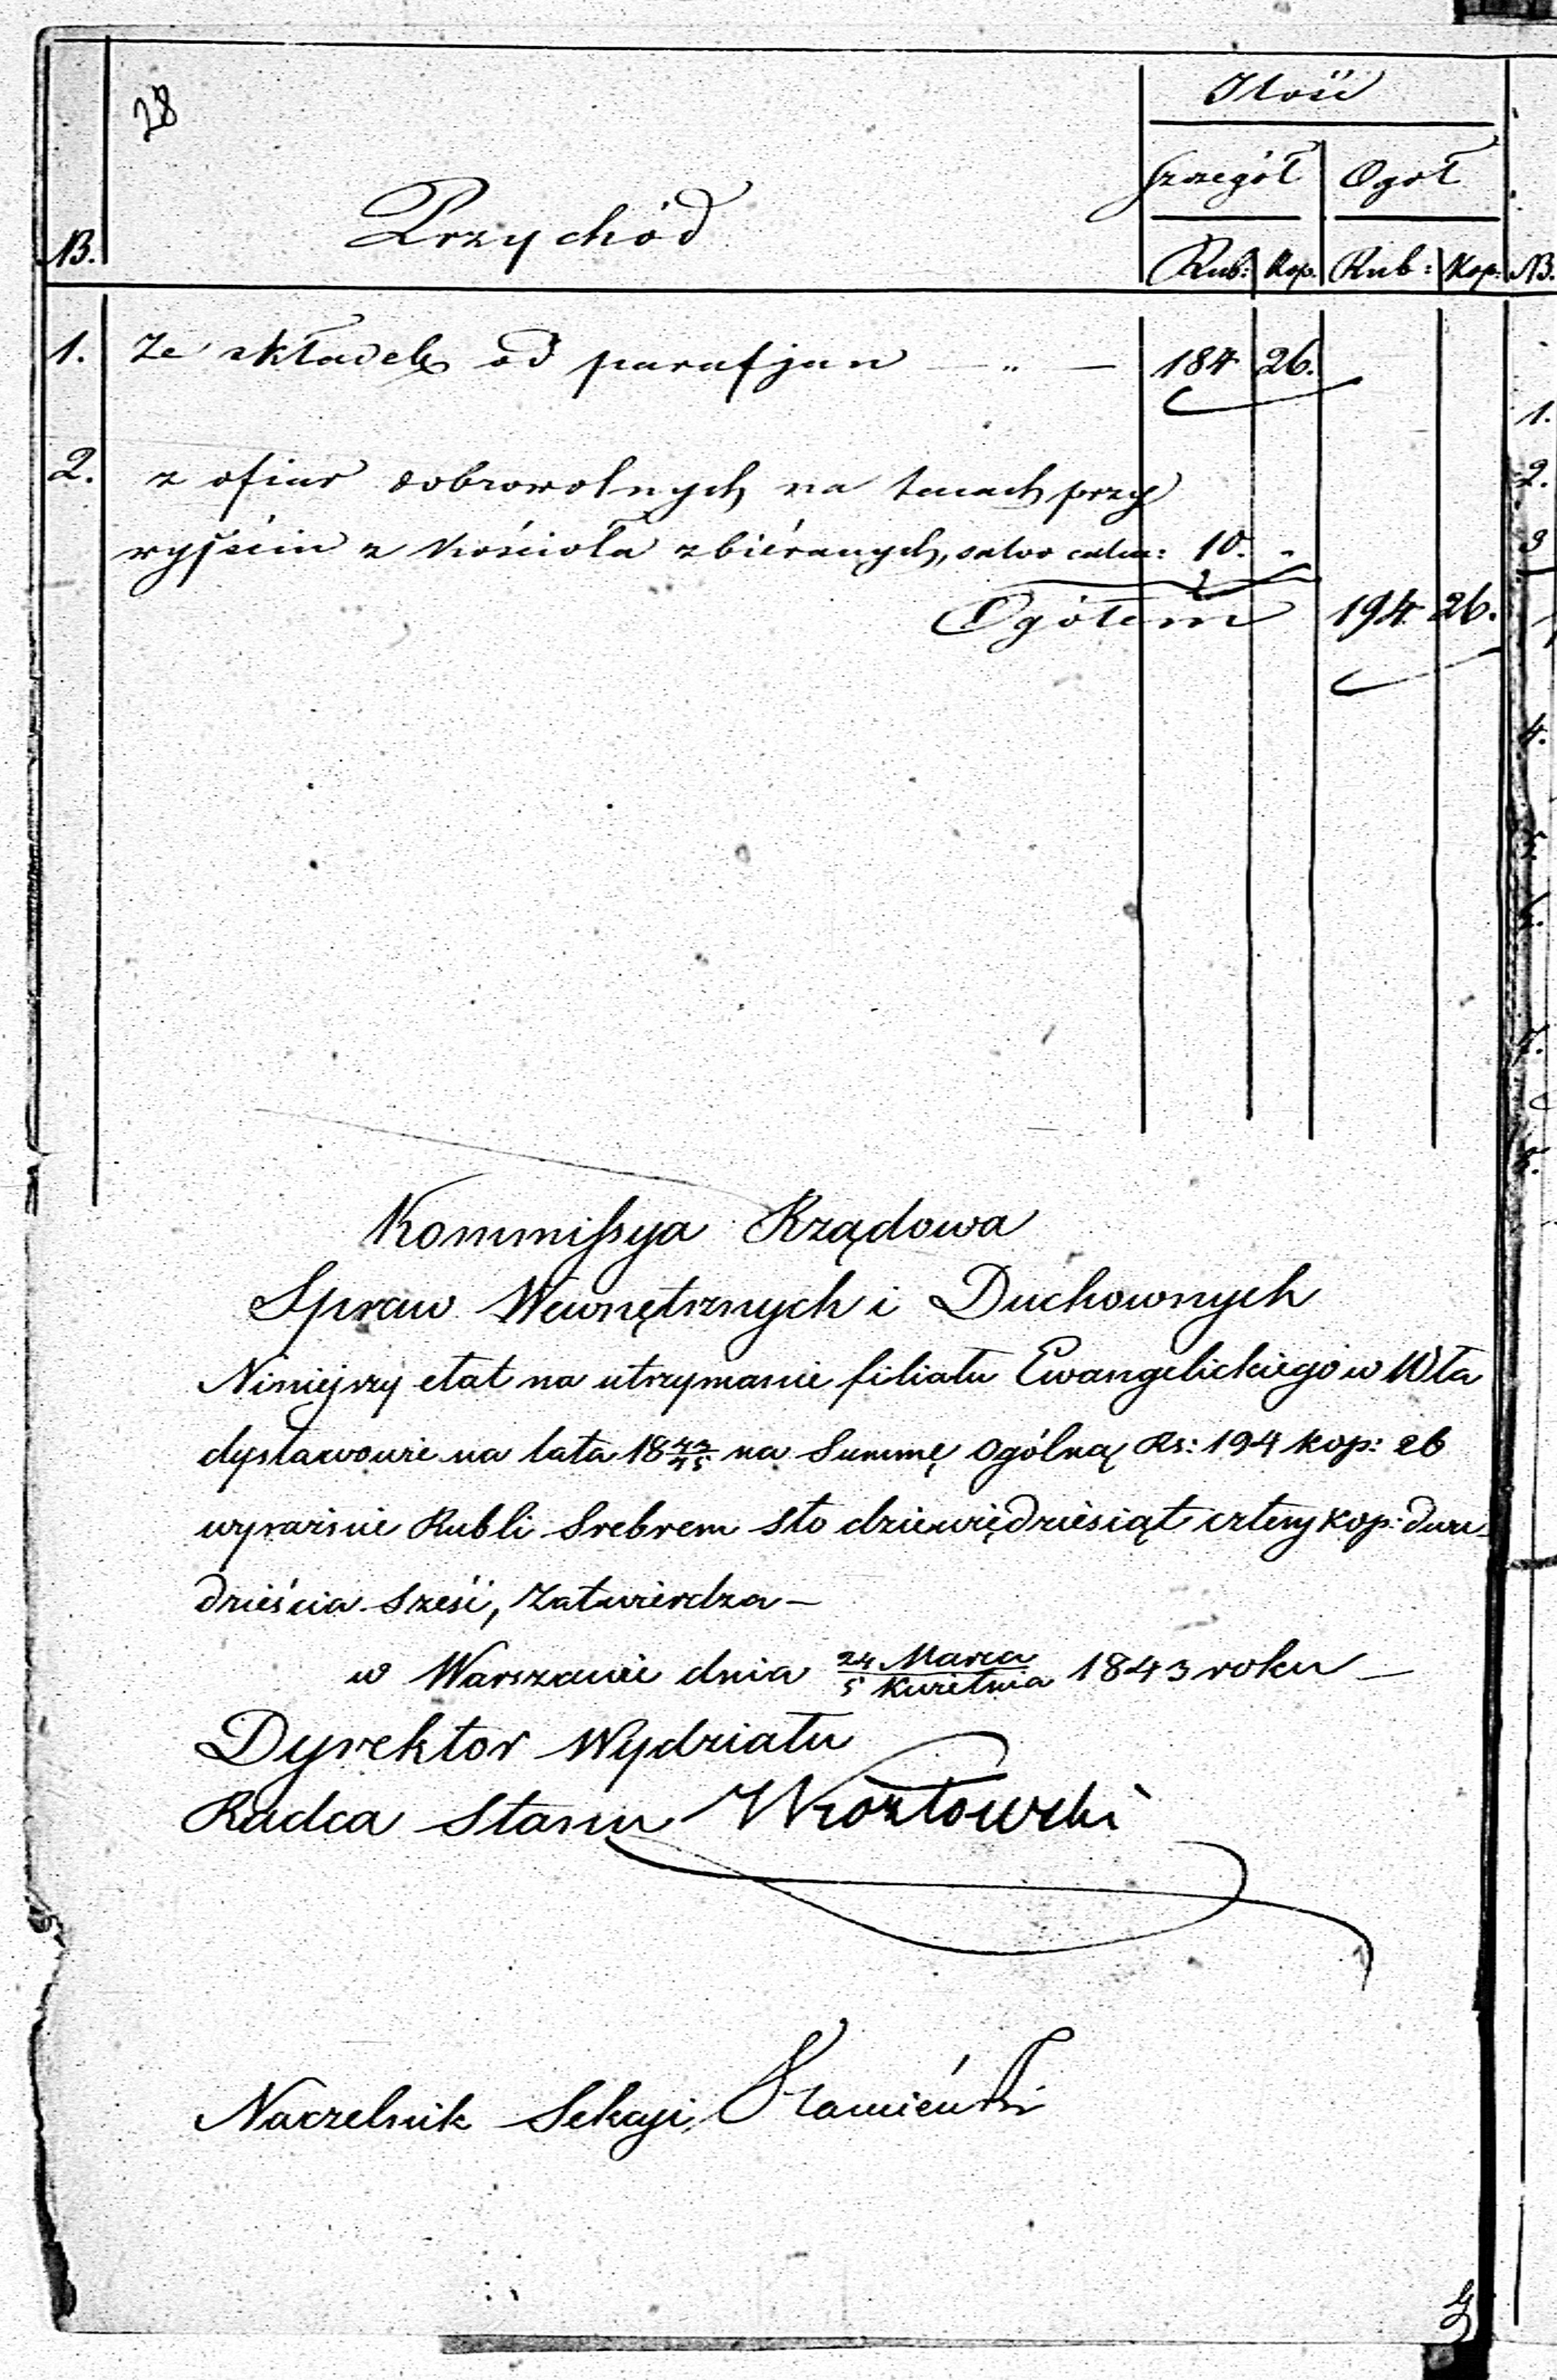 28
Ilość
Szczegół Ogół
N. Przychód Rub: Kop. Rub: Kop: N.
1. Ze składek od parafjan — „ — 184 26.
2. z ofiar dobrowolnych na tacach przy
wyjściu z kościoła zbiéranych, salvo calcu: 10. -
Ogółem 194 26.
1.
2.
3
4.
Kommissya Rządowa
Spraw Wewnętrznych i Duchownych
Niniejszy etat na utrzymanie filiału Ewangelickiego w Wła
dysławowie na lata 18 43/45 na Summę ogólną Rs: 194 kop: 26
wyraźnie Rubli Srebrem sto dziewięćdziesiąt cztery kop: dwa-
dzieścia sześć, Zatwierdza —
w Warszawie dnia 24 Marca / 5 Kwietnia 1843 roku —
Dyrektor Wydziału
Radca Stanu Kozłowski
Naczelnik Sekcyi, Kamieński